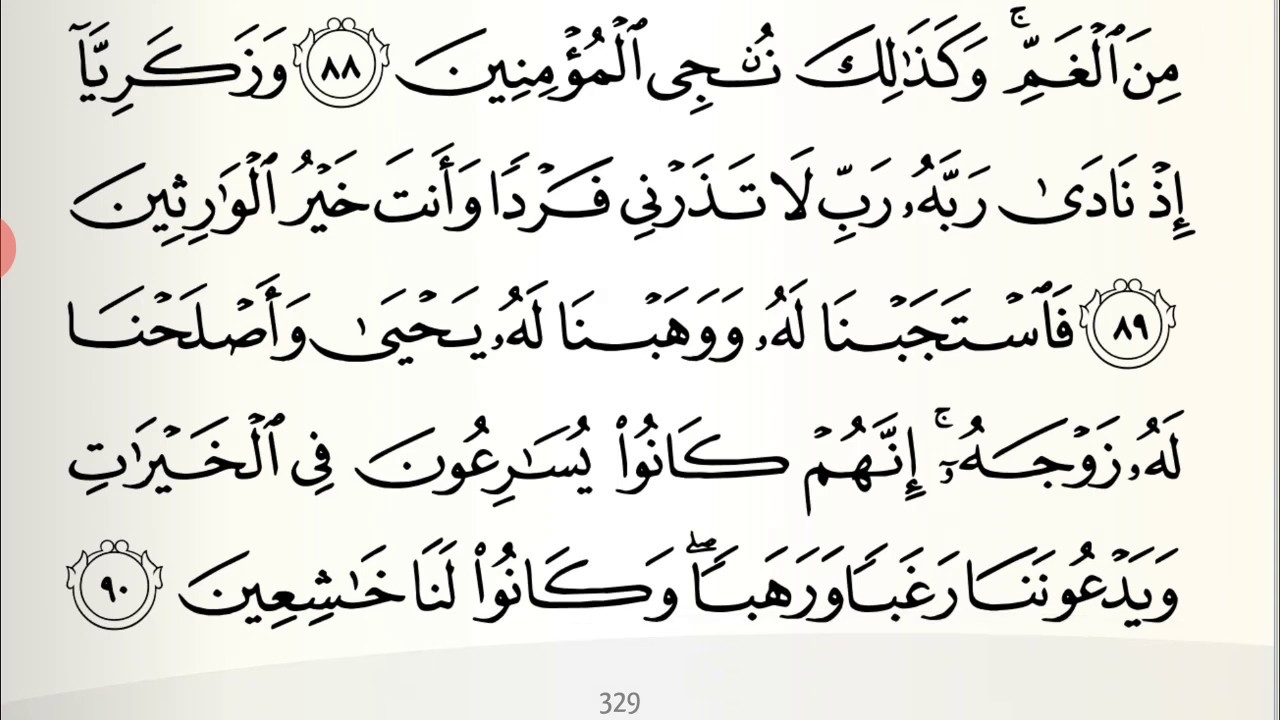 مِنَ ٱلْغَمِّۚ وَكَذَٰلِكَ نُـۨجِى ٱلْمُؤْمِنِينَ ٨٨ وَزَكَرِيَّآ
إِذْ نَادَىٰ رَبَّهُۥ رَبِّ لَا تَذَرْنِى فَرْدًا وَأَنتَ خَيْرُ ٱلْوَٰرِثِينَ
٨٩ فَٱسْتَجَبْنَا لَهُۥ وَوَهَبْنَا لَهُۥ يَحْيَىٰ وَأَصْلَحْنَا
لَهُۥ زَوْجَهُۥٓۚ إِنَّهُمْ كَانُوا۟ يُسَٰرِعُونَ فِى ٱلْخَيْرَٰتِ
وَيَدْعُونَنَا رَغَبًا وَرَهَبًاۖ وَكَانُوا۟ لَنَا خَٰشِعِينَ ٩٠
329